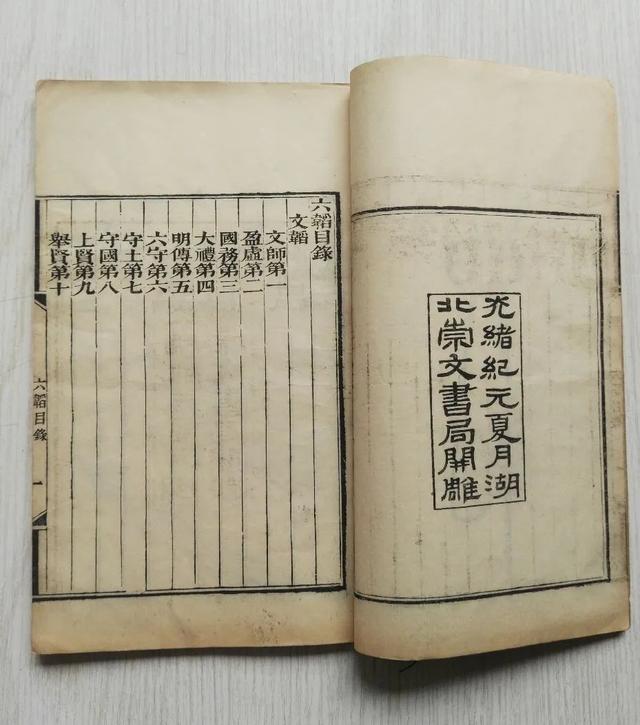 光緒紀元夏月湖
北崇文書局開雕
六韜目錄
文韜
文師第一
盈虛第二
國務第三
大禮第四
明傳第五
六守第六
守土第七
守國第八
上賢第九
舉賢第十
六韜目錄
一